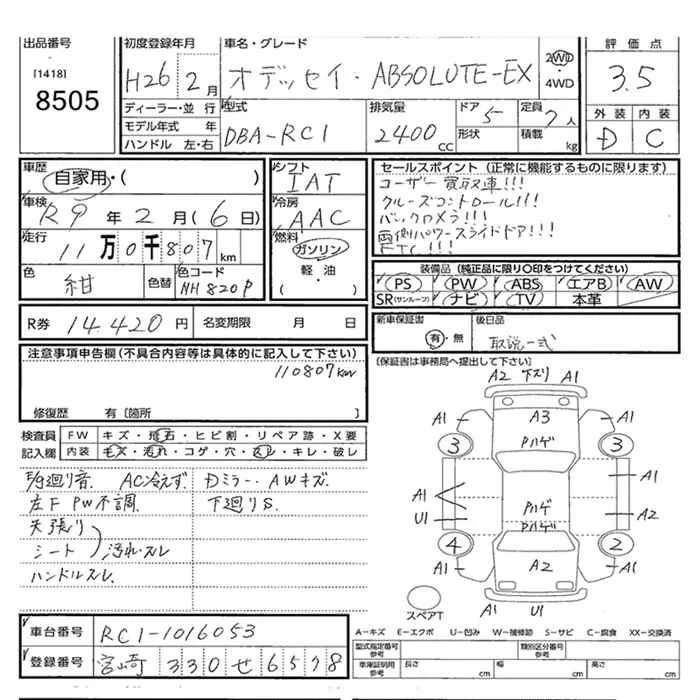 出品番号
[1418]
8505
初度登録年月
H26 2月
車名・グレード
オデッセイ・ABSOLUTE-EX
2WD
・
4WD
評価点
3.5
ディーラー・並行
モデル年式 年
ハンドル 左・右
型式
DBA-RC1
排気量
2400 cc
ドア
5
形状
定員
7人
積載 kg
外装 内装
D C
車歴
自家用・( )
車検
R9年2月(6日)
走行
11万0千807km
色
紺
色替
色コード
NH820P
シフト
IAT
冷房
AAC
燃料
ガソリン
・
軽・油
( )
セールスポイント (正常に機能するものに限ります)
ユーザー買取車!!!
クルーズコントロール!!!
バックカメラ!!!
両側パワースライドドア!!!
ETC!!!
装備品 (純正品に限り○印をつけてください)
PS PW ABS エアB AW
SR(サンルーフ) ナビ TV 本革
R券 14,420円
名変期限 月 日
新車保証書
有・無
後日品
取説一式
(保証書は事務局へ提出して下さい)
注意事項申告欄(不具合内容等は具体的に記入して下さい)
110807km
修復歴 有〔箇所 〕
検査員
記入欄
FW キズ・飛石・ヒビ割・リペア跡・X要
内装 キズ・汚れ・コゲ・穴・スレ・キレ・破レ
F/S廻り音. AC冷えず. Dミラー. AWキズ.
左F PW不調. 下廻りS.
天張り
シート 汚れ・スレ
ハンドルスレ.
A2 下ズリ A1
A1 A3 A1
3 Pハゲ 3
A1
A1
U1 Pハゲ A2
Pハゲ
4 2
A1 A2 A1
スペアT
A1 U1 A1
A-キズ E-エクボ U-凹み W-補修跡 S-サビ C-腐食 XX-交換済
車台番号 RC1-1016053
登録番号 宮崎 330 せ 6578
型式指定番号
参考
類別区分番号
参考
車庫証明用
参考
長さ cm
幅 cm
高さ cm